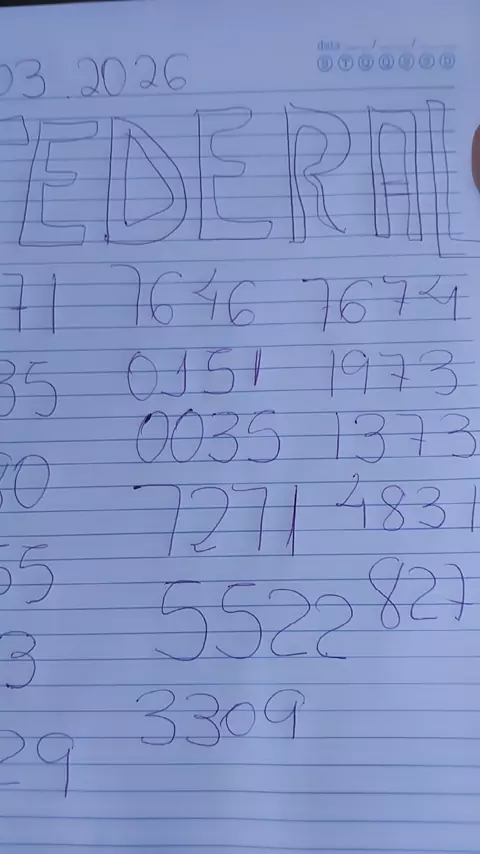 data ___/___/___
D T Q Q S S D
03.2026
FEDERAL
71 7646 7674
35 0151 1973
0035 1373
30
7271 4831
55
5522 827
3
3309
29